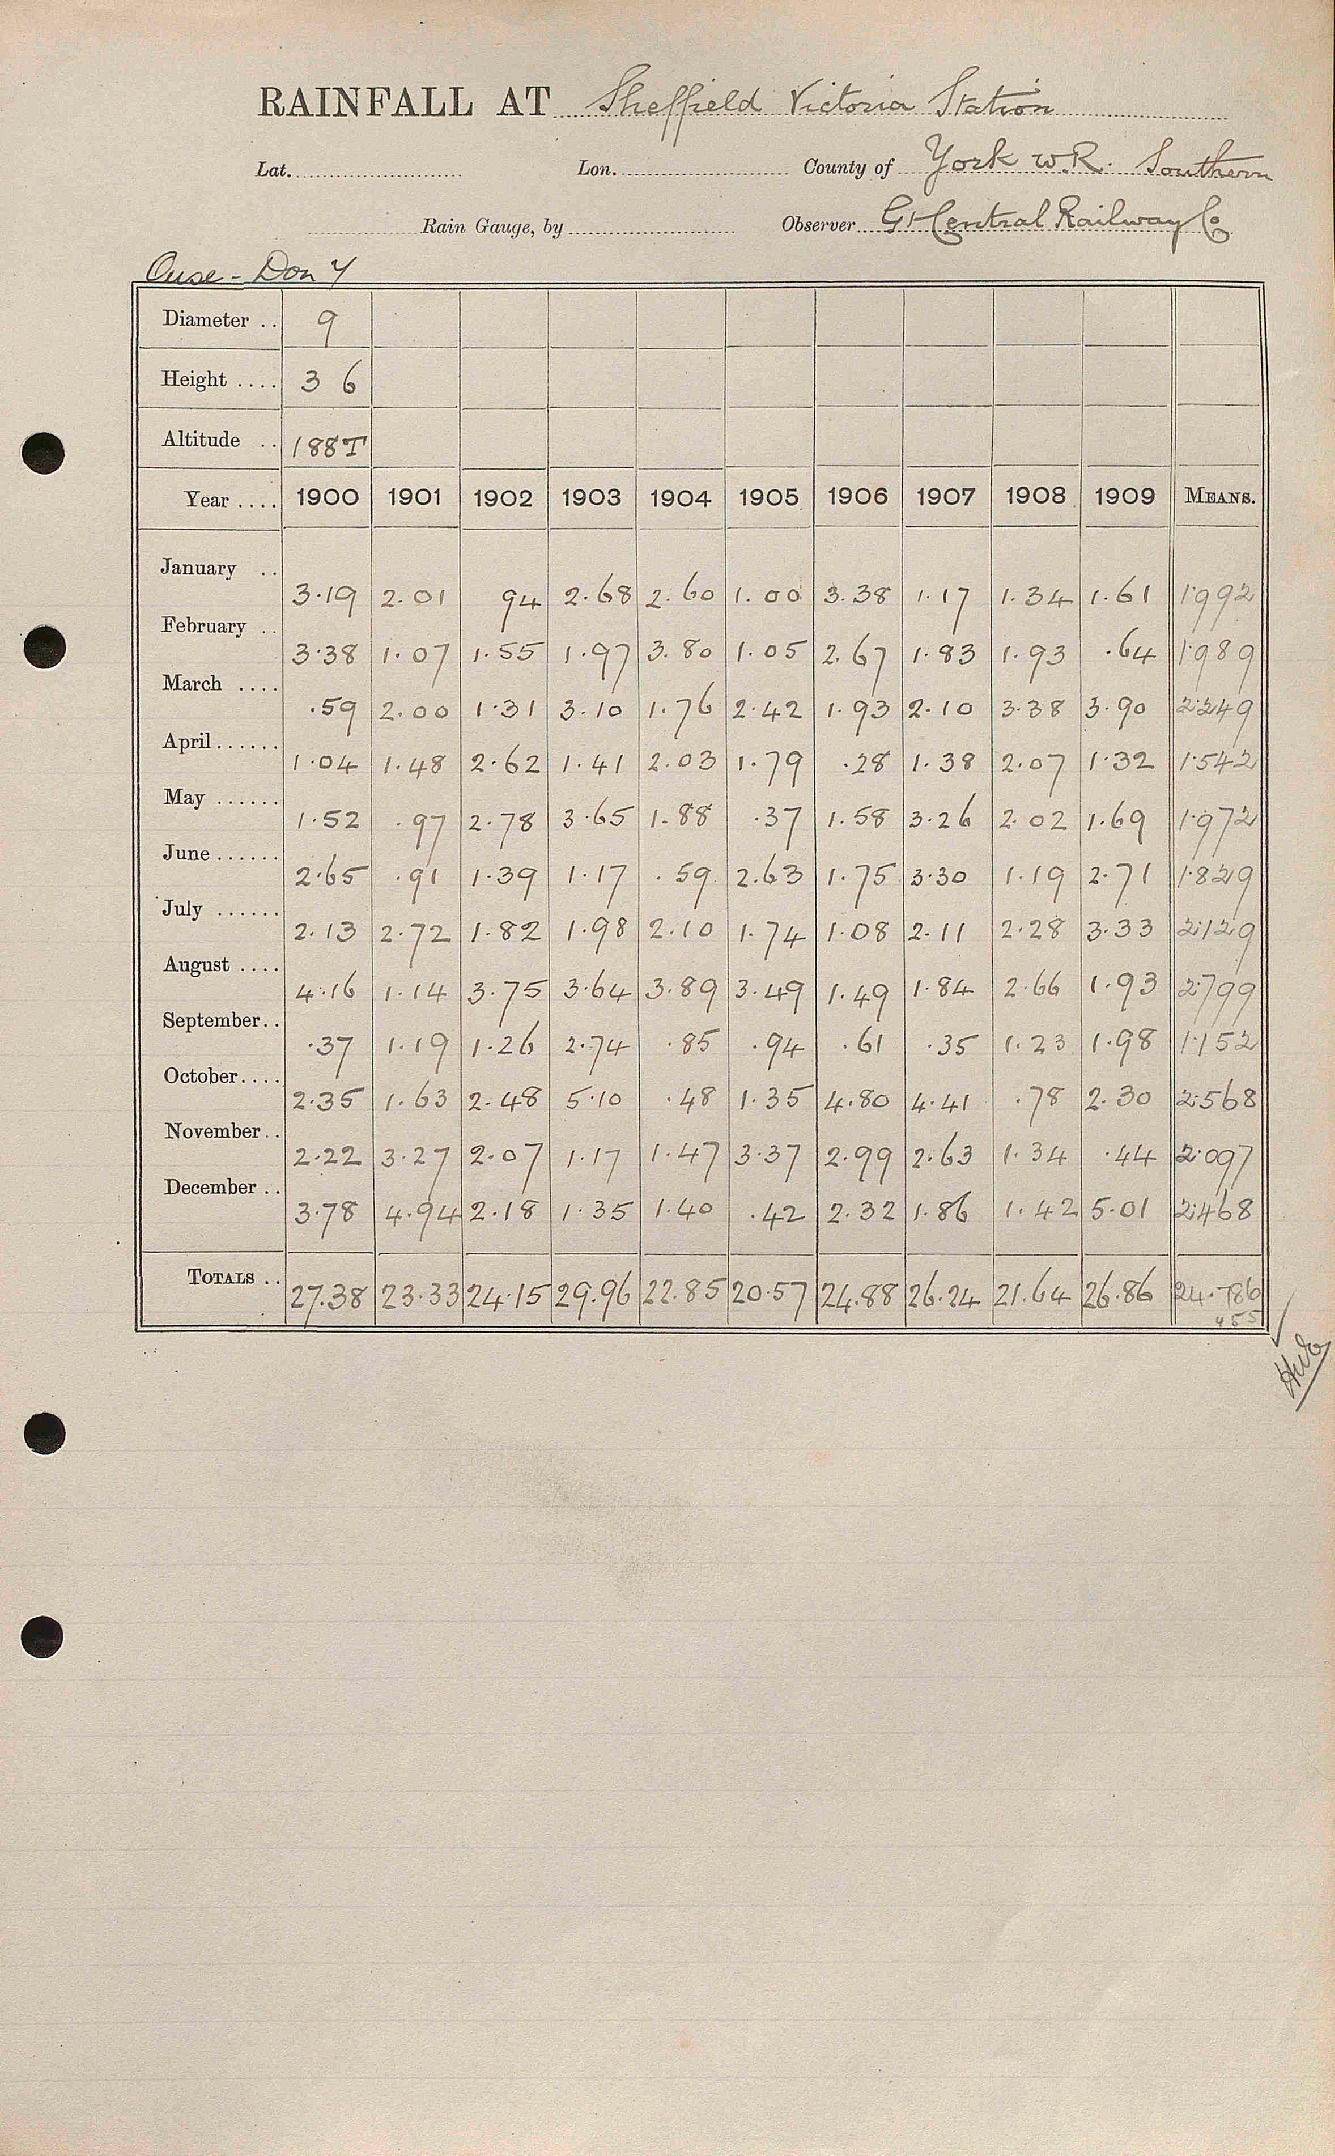 RAINFALL AT Sheffield Victoria Station
Lat. Lon. County of York W.R. Southern
Rain Gauge, by Observer Gt Central Railway Co
Ouse - Don Y
Diameter .. 9
Height .... 3 6
Altitude .. 188T
Year .... 1900 1901 1902 1903 1904 1905 1906 1907 1908 1909 MEANS.
January .. 3.19 2.01 94 2.68 2.60 1.00 3.38 1.17 1.34 1.61 1.992
February .. 3.38 1.07 1.55 1.97 3.80 1.05 2.67 1.83 1.93 .64 1.989
March .... .59 2.00 1.31 3.10 1.76 2.42 1.93 2.10 3.38 3.90 2.249
April ...... 1.04 1.48 2.62 1.41 2.03 1.79 .28 1.38 2.07 1.32 1.542
May ...... 1.52 .97 2.78 3.65 1.88 .37 1.58 3.26 2.02 1.69 1.972
June ...... 2.65 .91 1.39 1.17 .59 2.63 1.75 3.30 1.19 2.71 1.829
July ...... 2.13 2.72 1.82 1.98 2.10 1.74 1.08 2.11 2.28 3.33 2.129
August .... 4.16 1.14 3.75 3.64 3.89 3.49 1.49 1.84 2.66 1.93 2.799
September.. .37 1.19 1.26 2.74 .85 .94 .61 .35 1.23 1.98 1.152
October.... 2.35 1.63 2.48 5.10 .48 1.35 4.80 4.41 .78 2.30 2.568
November.. 2.22 3.27 2.07 1.17 1.47 3.37 2.99 2.63 1.34 .44 2.097
December .. 3.78 4.94 2.18 1.35 1.40 .42 2.32 1.86 1.42 5.01 2.468
TOTALS .. 27.38 23.33 24.15 29.96 22.85 20.57 24.88 26.24 21.64 26.86 24.786